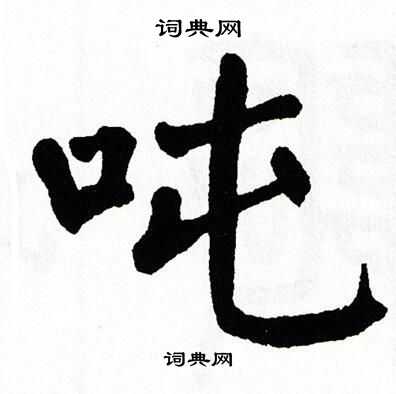 词典网
吨
词典网